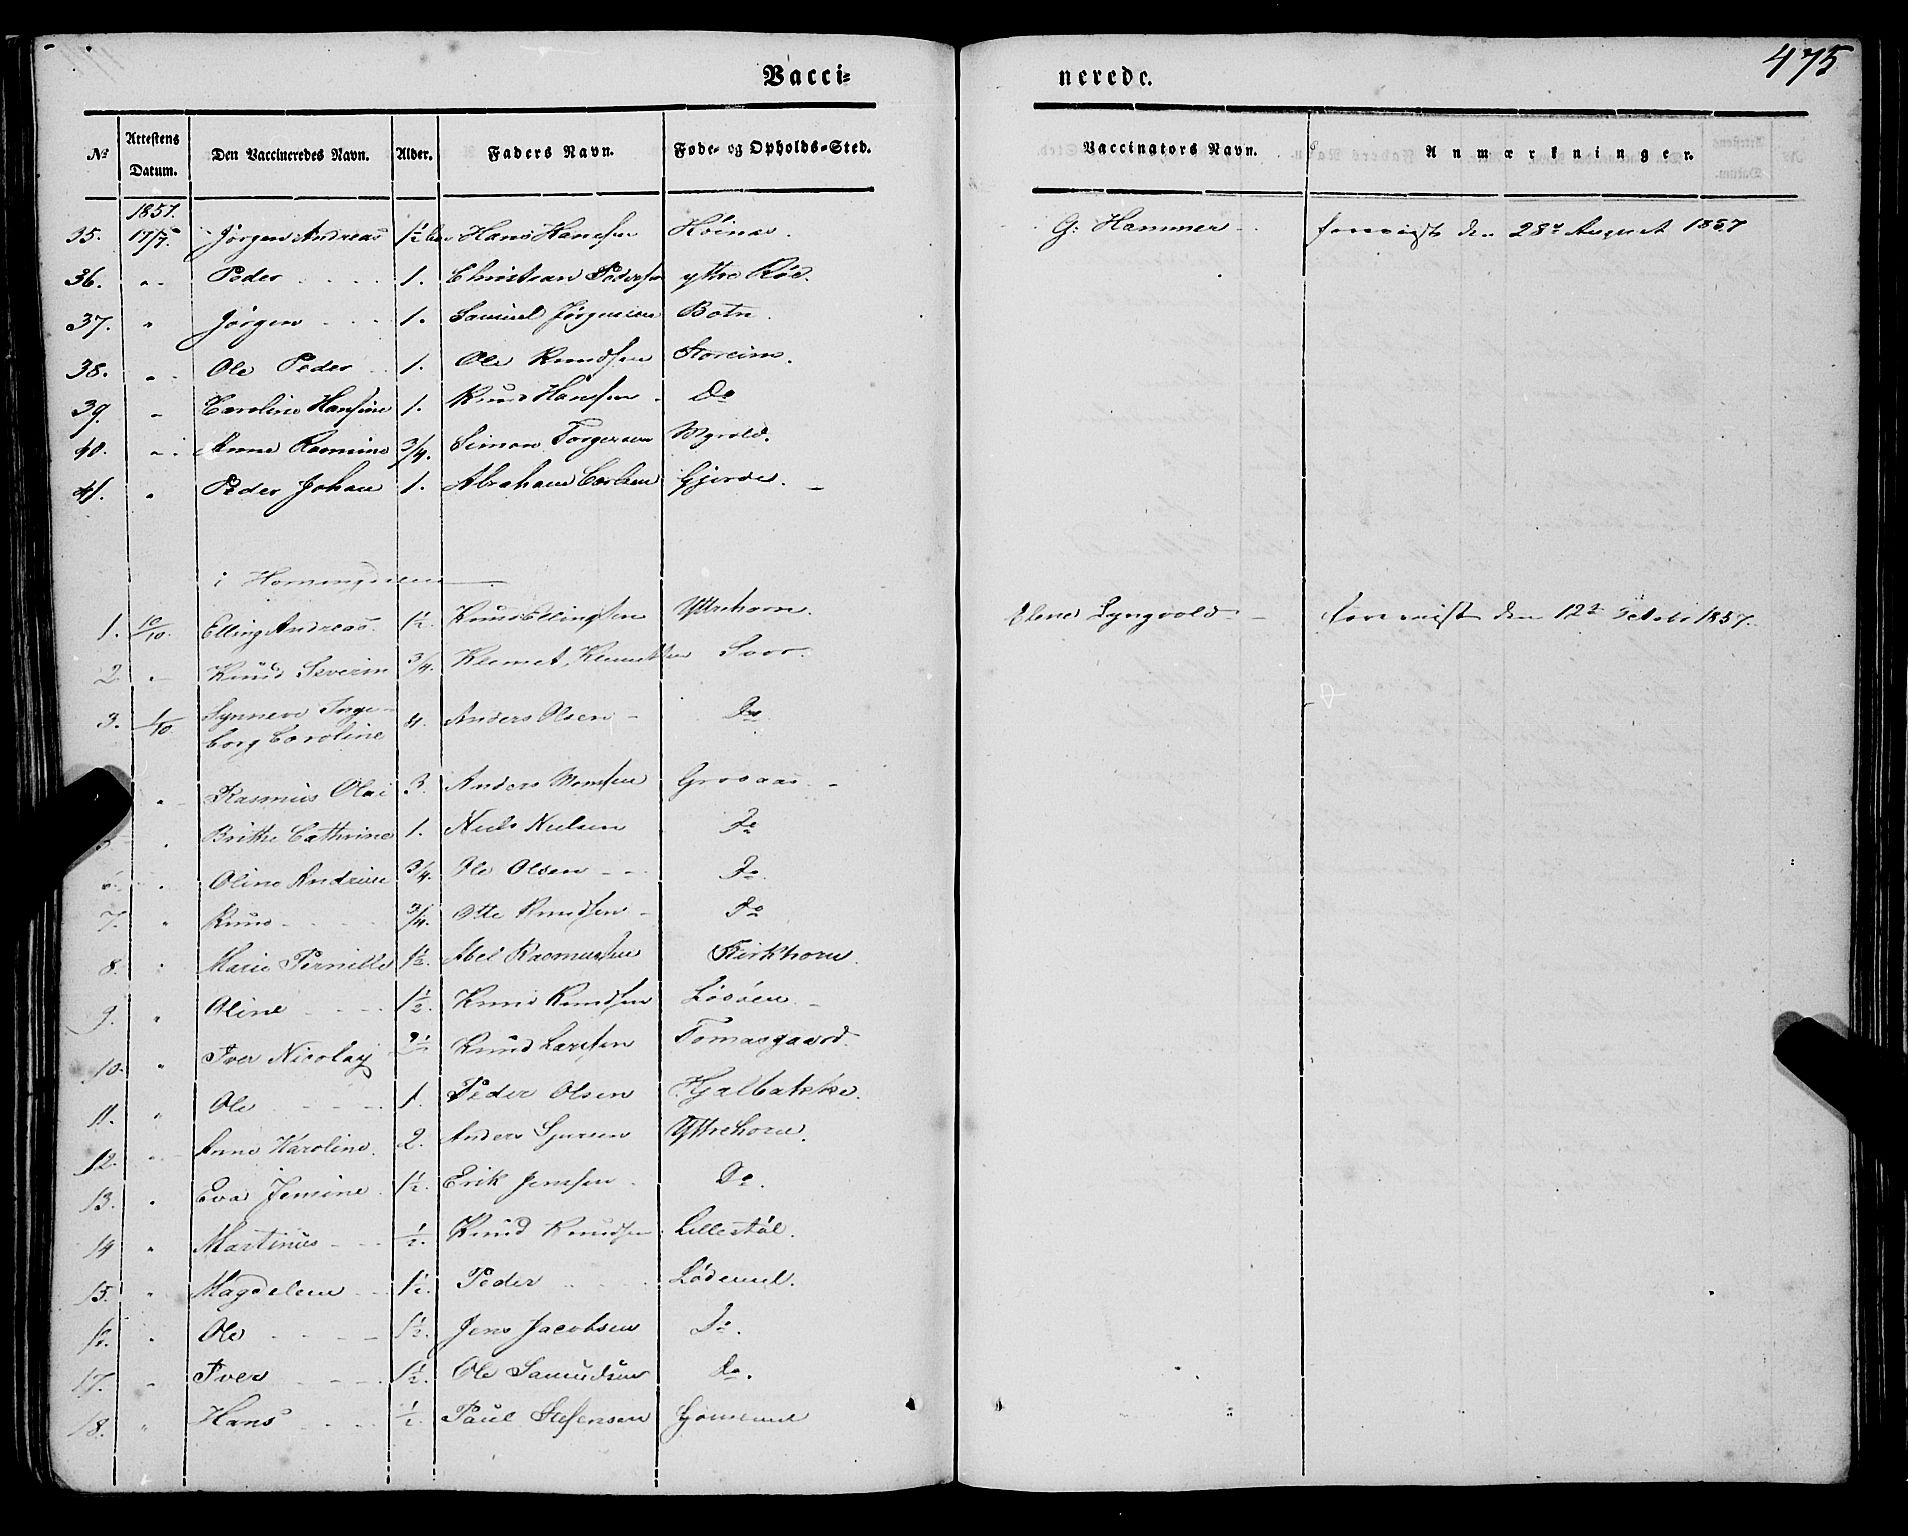 475
Vacci- nerede.
No | Attestens Datum. | Den Vaccineredes Navn. | Alder. | Faders Navn. | Føde- og Opholds-Sted. | Vaccinators Navn. | Anmærkninger.
1857.
35. 17/7. Jørgen Andreas 1½ Hans Hansen Høinæs. G: Hammer forevist den 28de August 1857
36. " Peder 1. Christian Pedersen yttre Röd.
37. " Jørgen 1. Samuel Jørgensen Botn.
38. " Ole Peder 1. Ole Knudsen Storeim.
39. " Caroline Hansine 1. Knud Hansen Do
40. " Anne Rasmine 3/4. Simon Torgersen Myrold.
41. " Peder Johan 1. Abraham Carlsen Gjerde.
i Horningdalen
1. 10/10. Elling Andreas. 1½. Knud Ellingsen Yttrehorn. Lyngvold forevist den 12te October 1857.
2. " Knud Severin 3/4. Klemet Klemetsen Svor.
3. 1/10 Synneve Inge-
borg Caroline 4. Anders Olsen Do
" Rasmus Olai 3. Anders Monsen Grosaas
5. " Brithe Cathrine 1. Niels Nielsen Do
6. " Oline Andrine 3/4. Ole Olsen Do
7. " Knud 3/4. Otte Knudsen Do
8. " Marie Pernille 1½. Abel Rasmussen Kirkhorn.
9. " Oline 1½. Knud Knudsen Løsöen
10. " Iver Nicolay 2½ Knud Larssen Tomasgaard.
11. " Ole 1. Peder Olsen Hjalbakke.
12. " Anne Karoline. 2. Anders Sjursen Yttrehorn.
13. " Eva Jensine 1½. Erik Jensen Do.
14 " Martinus ½. Knud Knudsen Lillestöl.
15. " Magdelene 1½. Peder Lødemel.
16. " Ole 1½. Jens Jacobsen Do.
17. " Iver 1½. Ole Samuelsen Do.
18. " Hans ½. Paul Stefensen